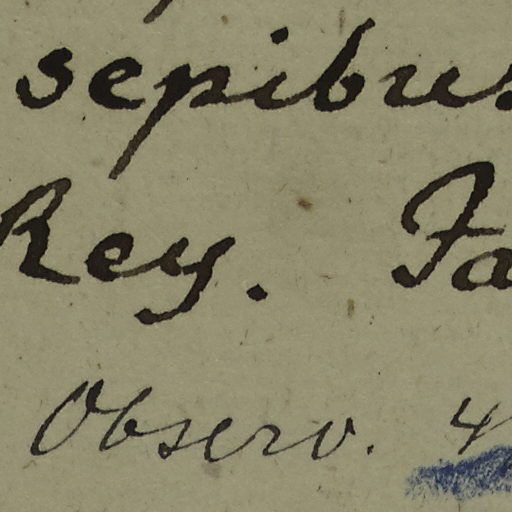 sepibus
Rey. Fa
Observ. 4